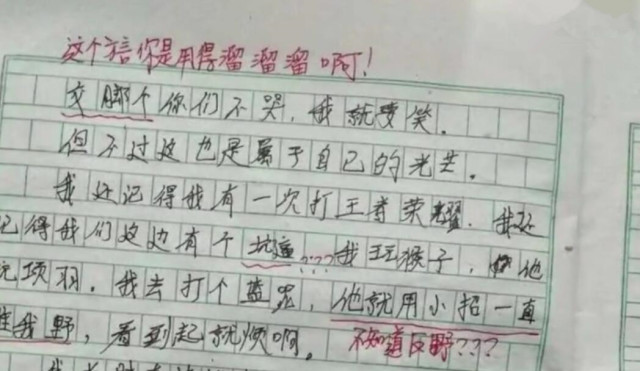 这个方言你是用得溜溜溜啊!
哪个你们不哭,我就要笑.
但不过这也是属于自己的光芒.
我还记得我有一次打王者荣耀.我还
记得我们这边有个坑逼...我玩猴子,他
玩项羽.我去打个蓝,他就用小招一直
推我野,看到起就烦啊.不知道反野???